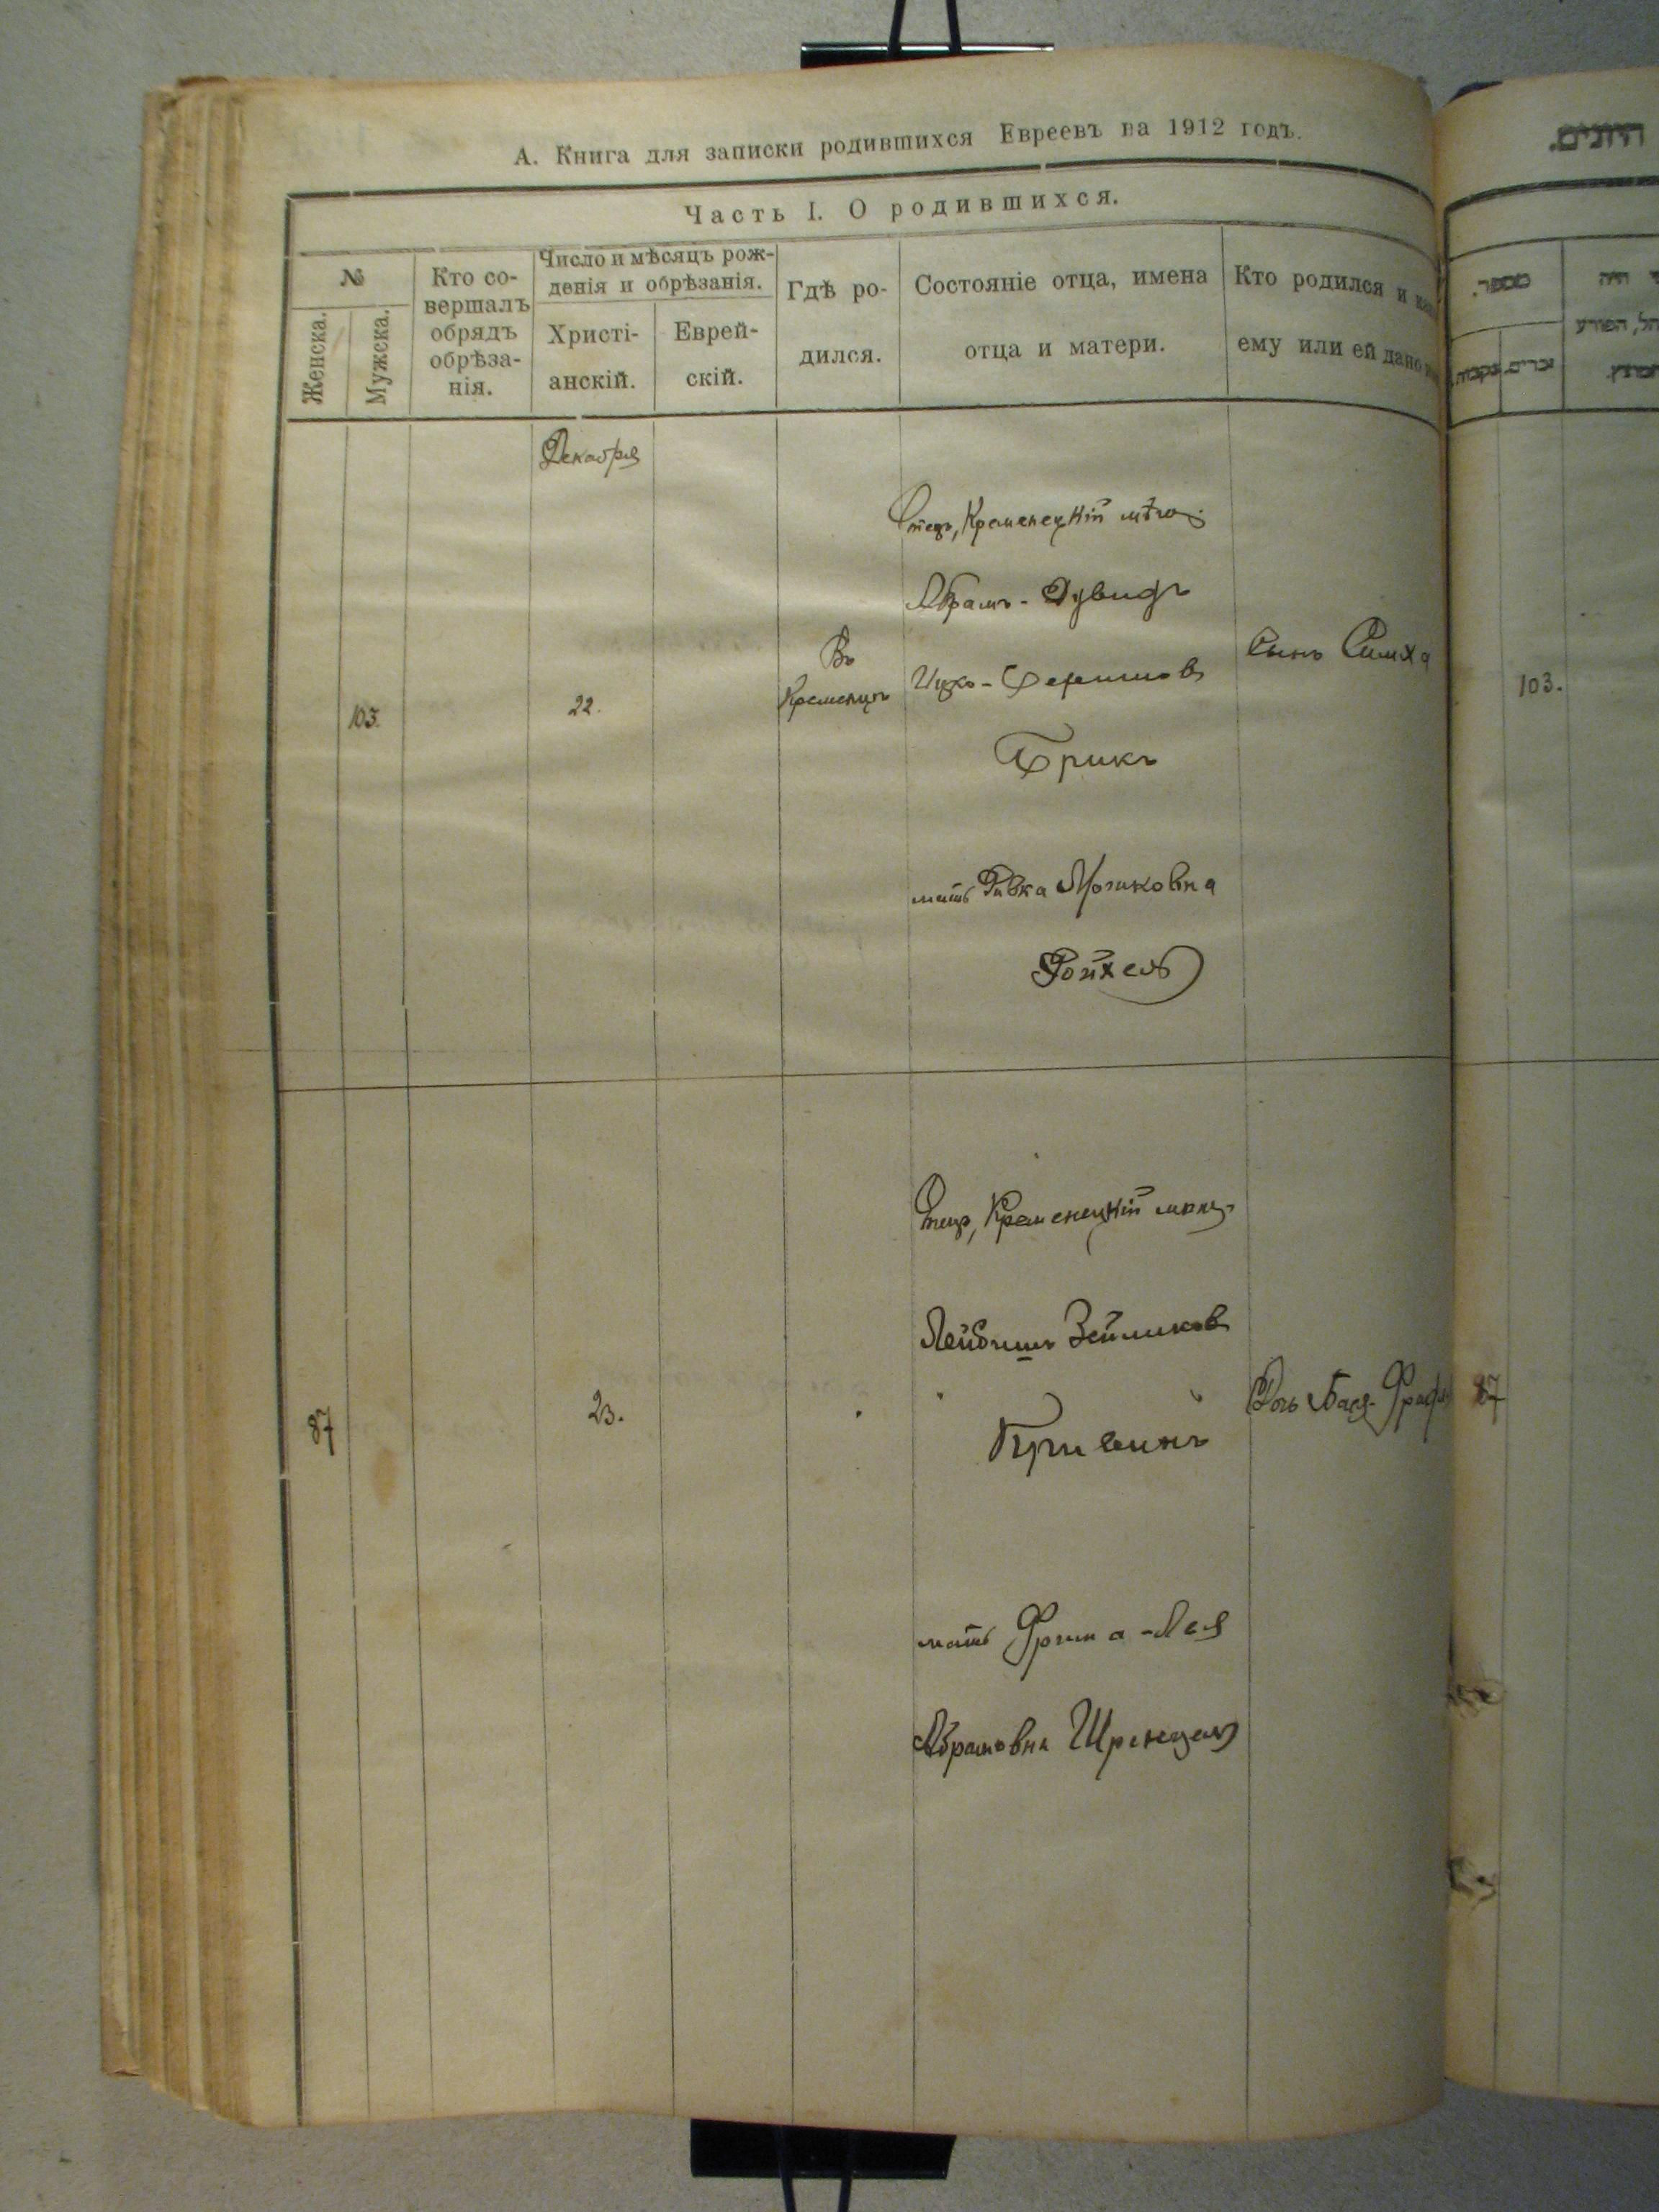 А. Книга для записки родившихся Евреевъ на 1912 годъ.
Часть I. О родившихся.
№
Женска.
Мужска.
Кто со-
вершалъ
обрядъ
обрѣза-
нія.
Число и мѣсяцъ рож-
денія и обрѣзанія.
Христі-
анскій.
Еврей-
скій.
Гдѣ ро-
дился.
Состояніе отца, имена
отца и матери.
Кто родился и
ему или ей дано
Декабря
103.
22.
Въ
Кременцѣ
Отецъ, Кременецкій мѣщ.
Абрамъ-Дувидъ
Ицко-
Брикъ
мать Ривка Мошковна
Ройхель
Сынъ Симха
87
23.
Отецъ, Кременецкій мѣщ.
Лейбишъ Зейликов
мать Фрима-Лея
Абрамовна Шренцель
Дочь Бася-
מספר.
זכרים.
נקבות.
103.
87